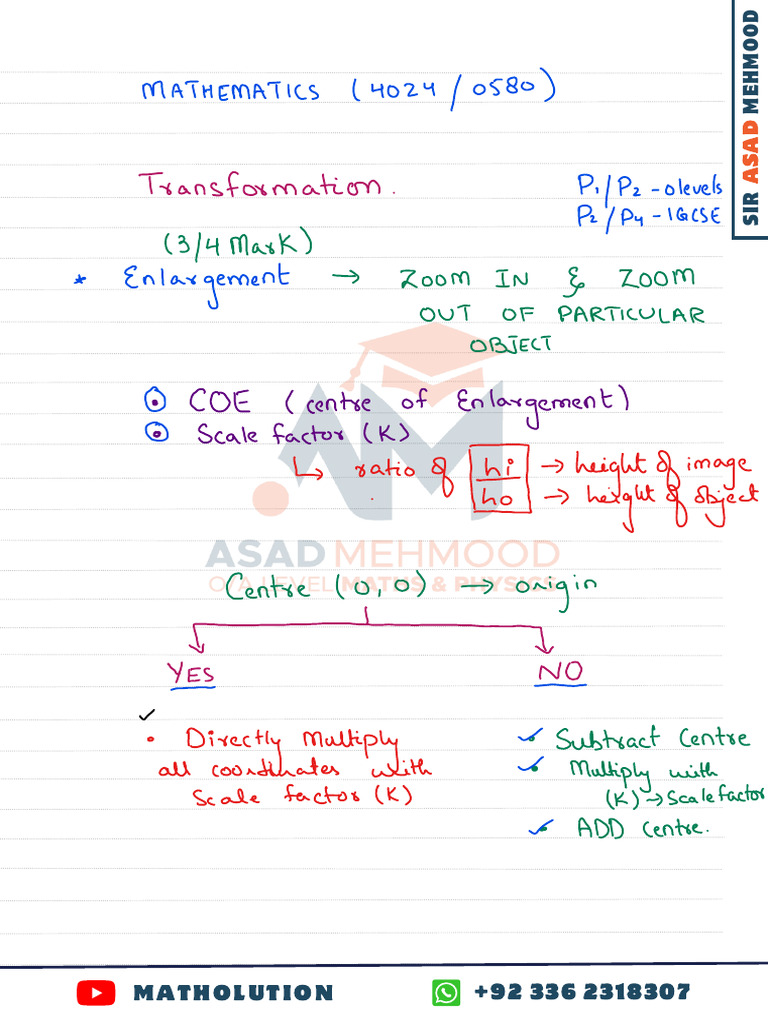 SIR ASAD MEHMOOD
MATHEMATICS (4024/0580)
Transformation.
P1/P2 - olevels
P2/P4 - IGCSE
(3/4 Mark)
* Enlargement → ZOOM IN & ZOOM
OUT OF PARTICULAR
OBJECT
COE (centre of Enlargement)
Scale factor (K)
↳ ratio of hi → height of image
ho → height of object
ASAD MEHMOOD
O/A LEVEL MATHS & PHYSICS
Centre (0,0) → origin
YES NO
✓
• Directly Multiply
all coordinates with
Scale factor (K)
✓ Subtract Centre
✓ Multiply with
(K) → Scale factor
✓ ADD Centre.
MATHOLUTION +92 336 2318307